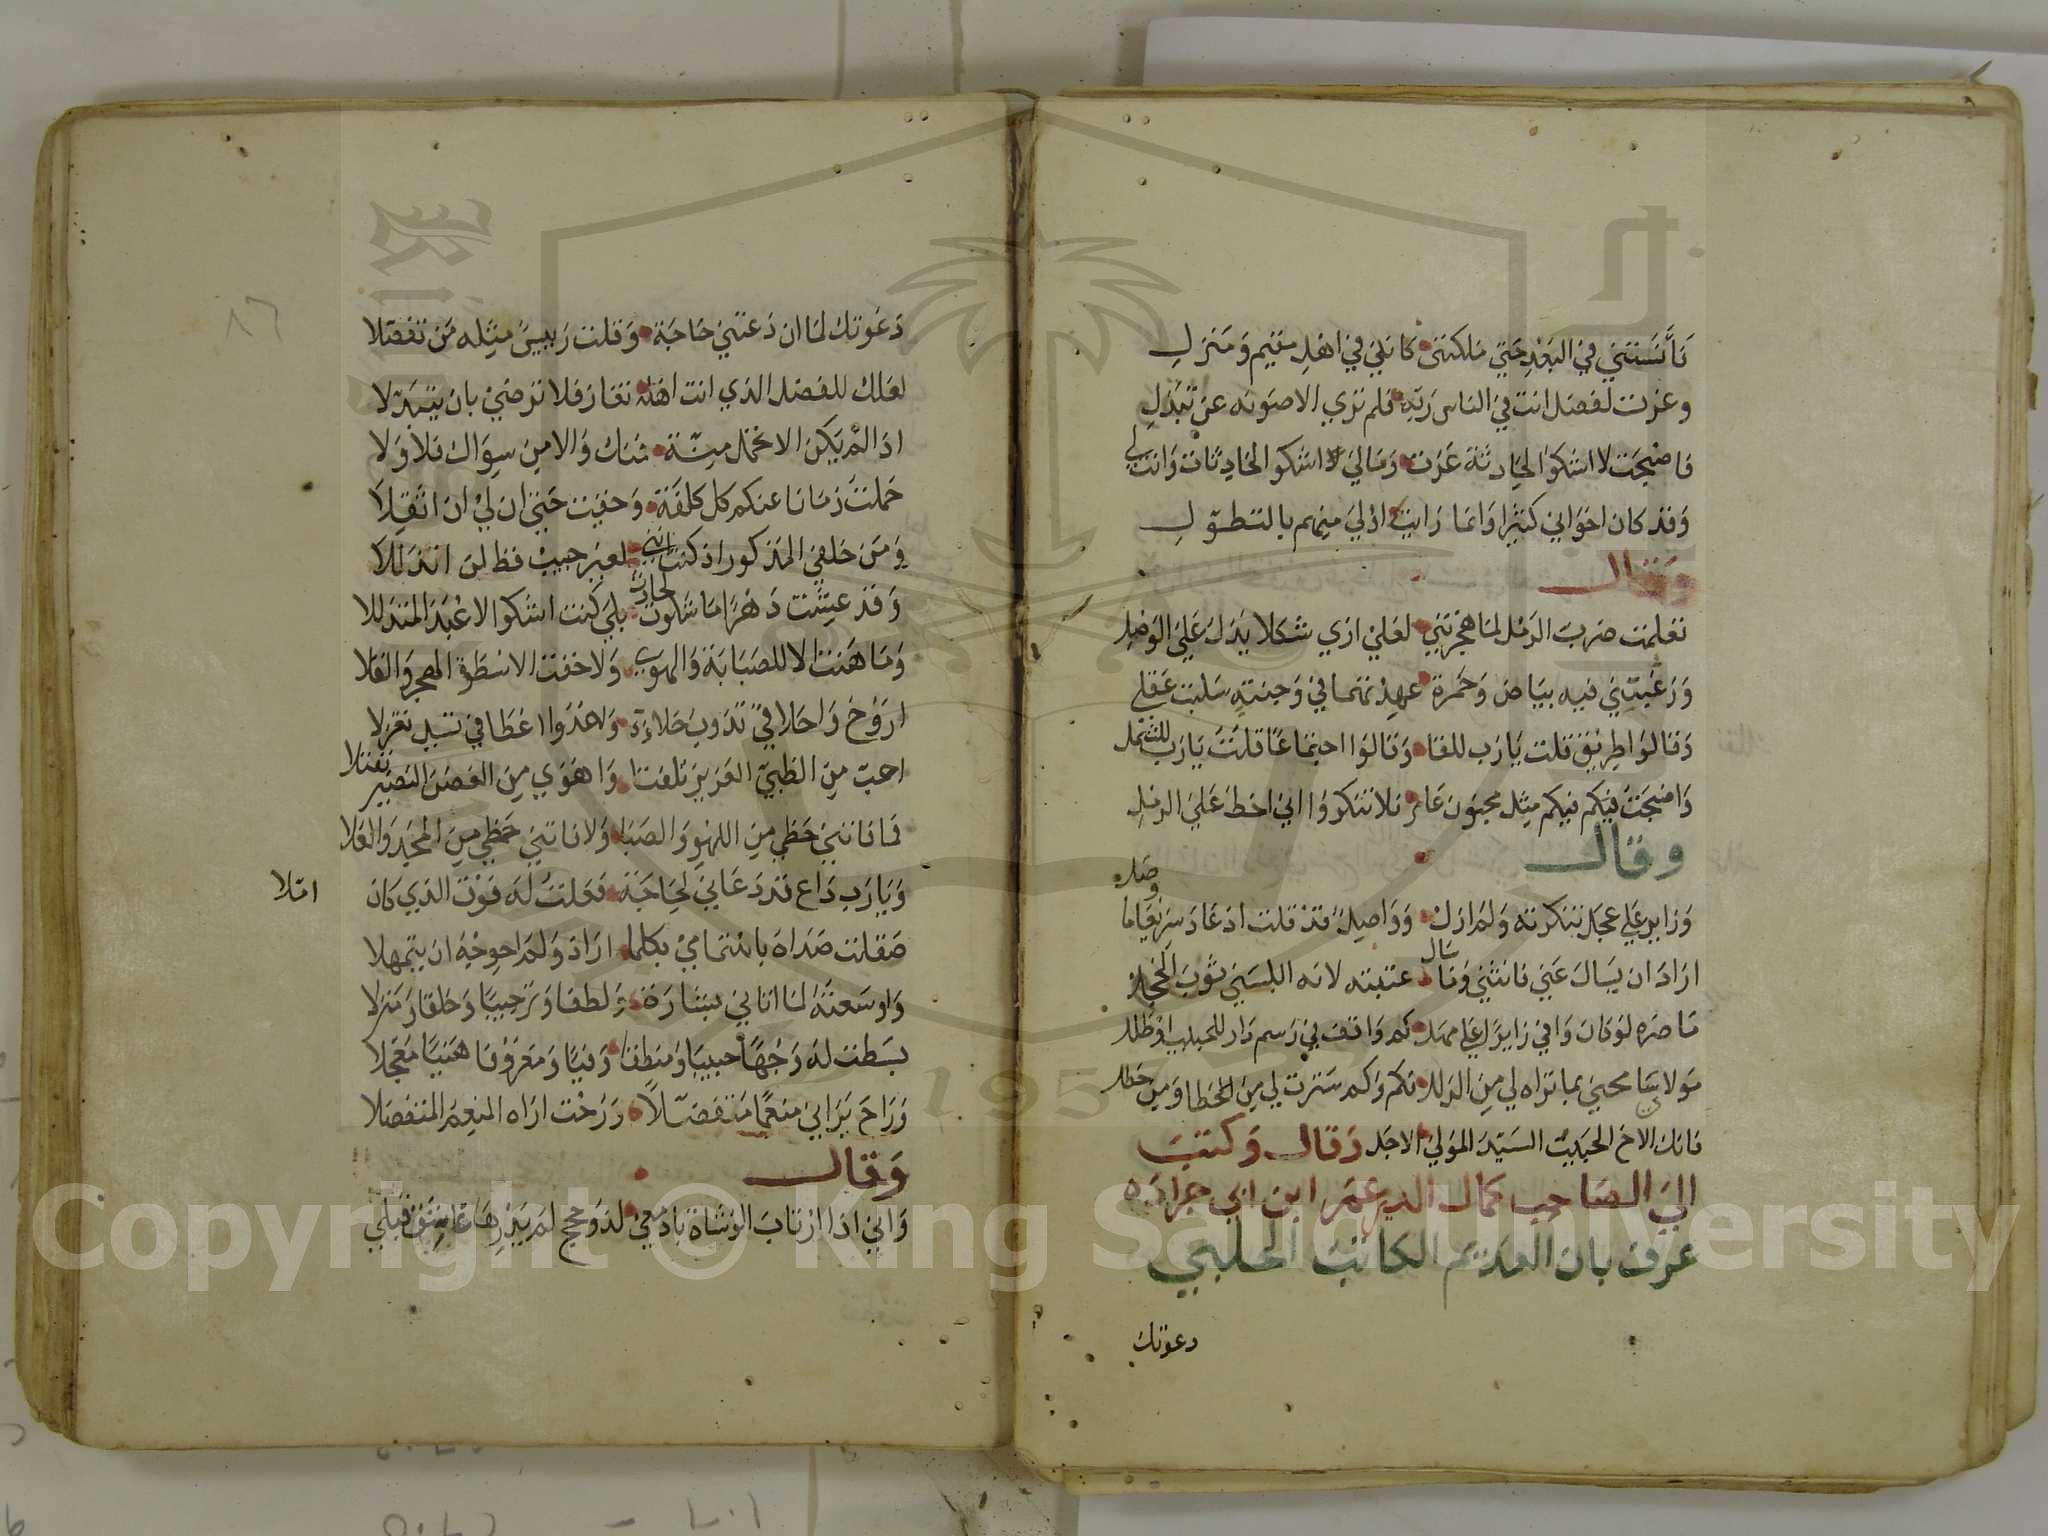 فآنستني في البعد حتي ملكتني كانني في اهل مقيم ومنزل
وعزت لفضل انت في الناس ربه فلم تري الا صونه عن تبذل
فاصبحت لا اشكوا لحادثة عرت ومالي لا اشكو الحادثات وانت لي
وقد كان اخواني كثيرا وانما رايتك اولي منهم بالتطول
وقال
تعلمت ضرب الرمل لما هجرتني لعلي اري شكلا يدل علي الوصل
ورغبتني فيه بياض وحمرة عهدتهما في وجنتيه سلبت عقلي
وقالوا طريق قلت يا رب للقا وقالوا اجتماعا قلت يا رب للشمل
واصبحت فيكم مثل مجنون عامر فلا تنكروا اني اخط علي الرمل
وقال
وزاير علي عجل تنكرته ولم ازل وواصل قد قلت اذ عاد سريعا ما وصل
اراد ان يسال عني فانثني وما سال عتبته لانه البسني ثوب الخجل
ما ضره لو كان وافي زايرا علي مهل كم واقف لي في رسم دار للحبيب او طلل
مولاي سامحني بما تراه لي من الزلل فكم وكم سترت لي من الخطا ومن خطل
فانك الاخ الحبيب السيد المولي الاجل وقال وكتب
الي الصاحب كمال الدين عمر ابن ابي جرادة
عرف بابن العديم الكاتب الحلبي
دعوتك
دعوتك لما ان دعتني حاجة وقلت رييس مثله من تفضلا
لعلك للفضل الذي انت اهله تغار فلا ترضي بان يتبدلا
اذا لم يكن الا تحمل منة فمنك والا من سواك فلا ولا
حملت زمانا عنكم كل كلفة وخففت حتي ان لي ان اثقلا
ومن خلقي المذكور اذ كنت انني لغير حبيب قط لن اتذللا
وقد عشت دهرا ما شكوت لحادث بلي كنت اشكوا الاغيد المتدللا
وما هنت الا للصبابة والهوي ولا خفت الا سطوة الهجر والقلا
اروح واخلاقي تذوب حلاوة واغدوا اعطافي تسيل تغزلا
احب من الظبي الغرير تلفتا واهوي من الغصن النضير تفتلا
فما فاتني حظي من اللهو والصبا ولا فاتني حظي من المجد والعلا
ويا رب داع قد دعاني لحاجة فعلت له فوق الذي كان املا
صقلت صداه باهتمامي بكلما اراد ولم احوجه ان يتمهلا
واوسعته لما اتاني بشارة ولطفا وترحيبا وخلقا ومنزلا
بسطت له وجها حبيبا ومنطقا وفيا ومعروفا هنيا معجلا
وراح يراني منعما متفضلا ورحت اراه المنعم المتفضلا
وقال
واني اذا ارتاب الوشاة بادمعي لذو حجج لم يبدها عاشق قبلي